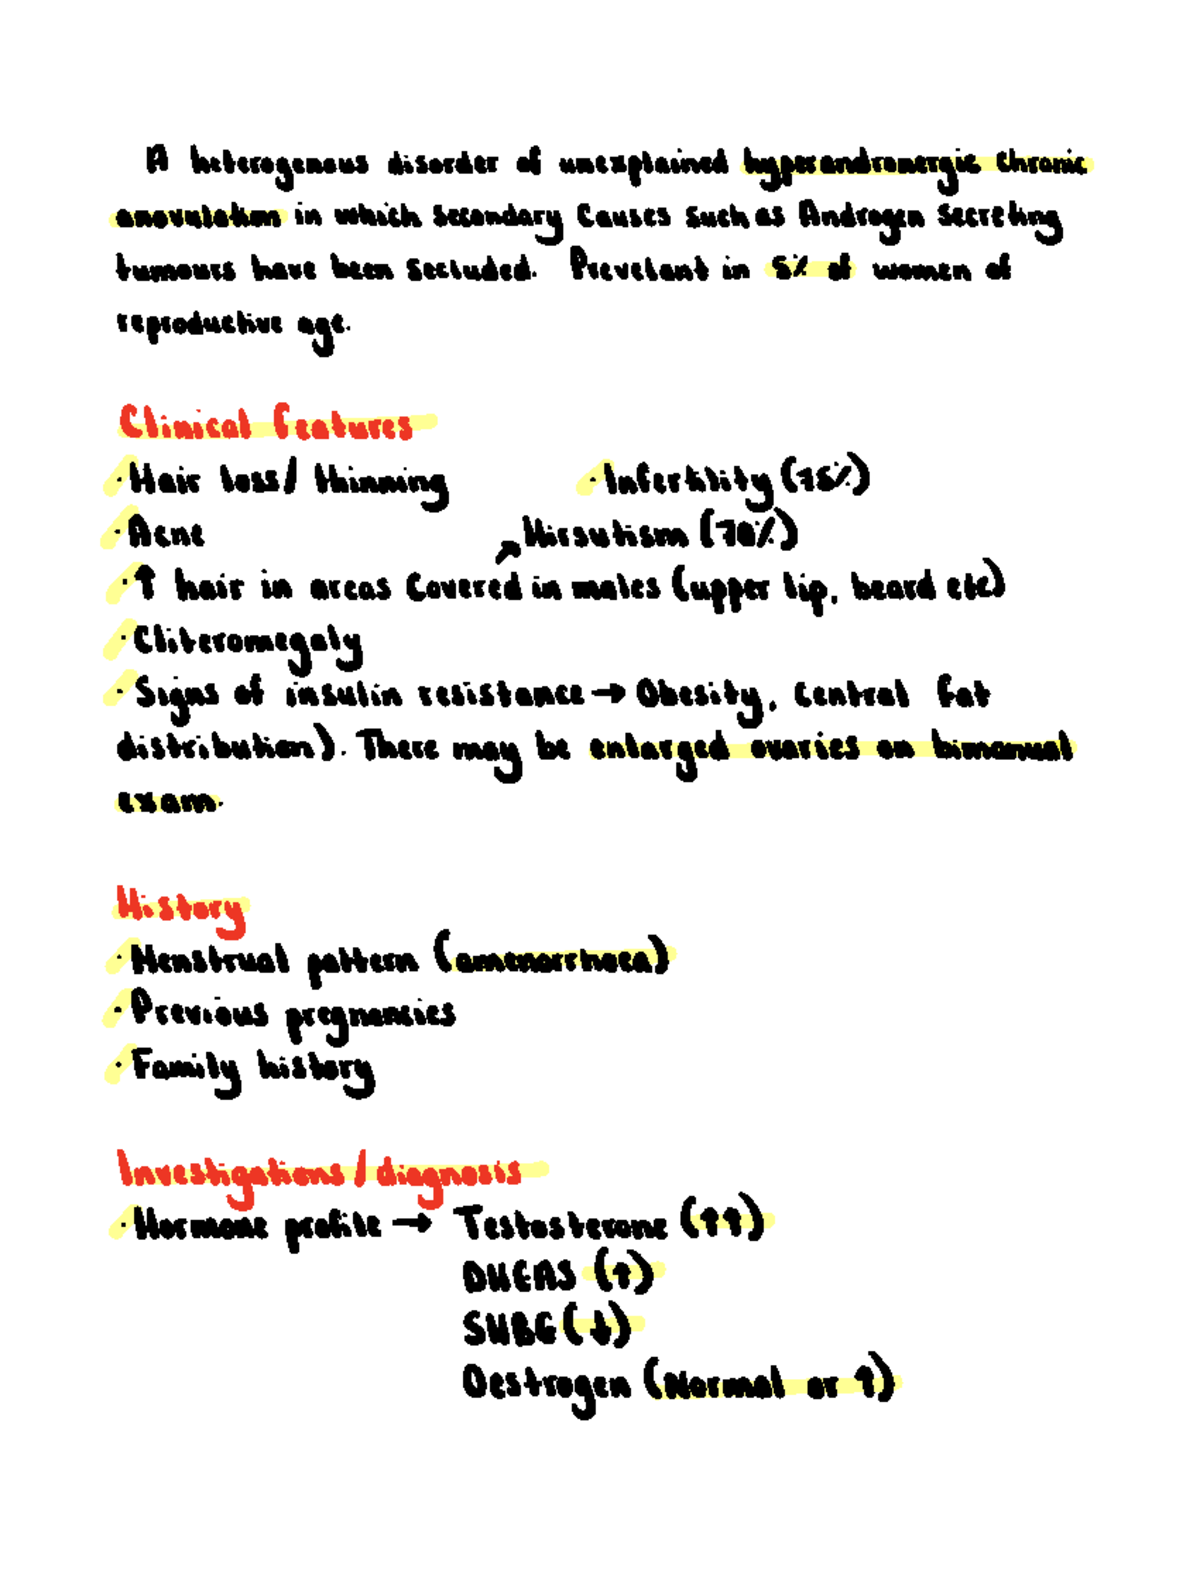 A heterogenous disorder of unexplained hyperandronergic chronic
anovulation in which secondary causes such as Androgen secreting
tumours have been secluded. Prevelant in 5% of women of
reproductive age.
Clinical features
· Hair loss/ thinning · Infertility (75%)
· Acne Hirsutism (70%)
· ↑ hair in areas covered in males (upper lip, beard etc)
· Cliteromegaly
· Signs of insulin resistance → Obesity, central fat
distribution). There may be enlarged ovaries on bimanual
exam.
History
· Menstrual pattern (amenorrhoea)
· Previous pregnancies
· Family history
Investigations / diagnosis
· Hormone profile → Testosterone (↑↑)
DHEAS (↑)
SHBG (↓)
Oestrogen (Normal or ↑)